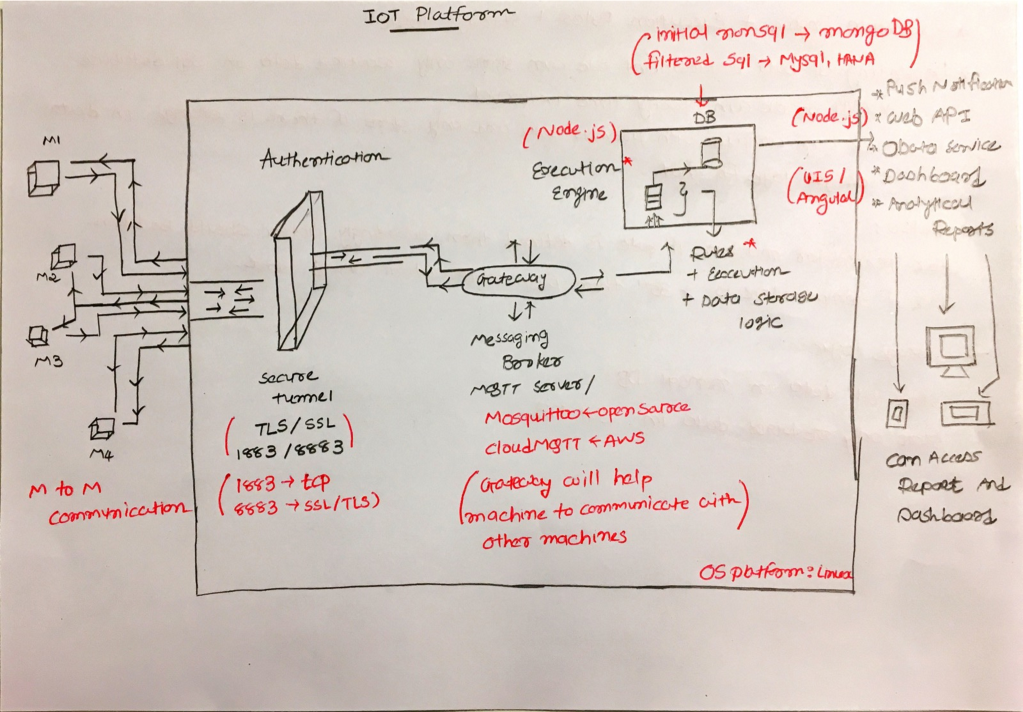 IoT Platform
(initial nonsql → mongoDB
filtered sql → Mysql, HANA)
DB
(Node.js)
Execution *
Engine
Rules *
+ Execution
+ Data storage
logic
(Node.js)
(UI5/
Angular)
* Push Notification
* Web API
* Odata Service
* Dashboard
* Analytical
Reports
M1
M2
M3
M4
M to M
communication
Authentication
secure
tunnel
(TLS/SSL
1883/8883)
(1883 → tcp
8883 → SSL/TLS)
Gateway
Messaging
Broker
MQTT Server/
Mosquittoo ← open saroce
cloudMQTT ← AWS
(Gateway will help
machine to communicate with
other machines)
OS platform: Linux
Can Access
Report And
Dashboard